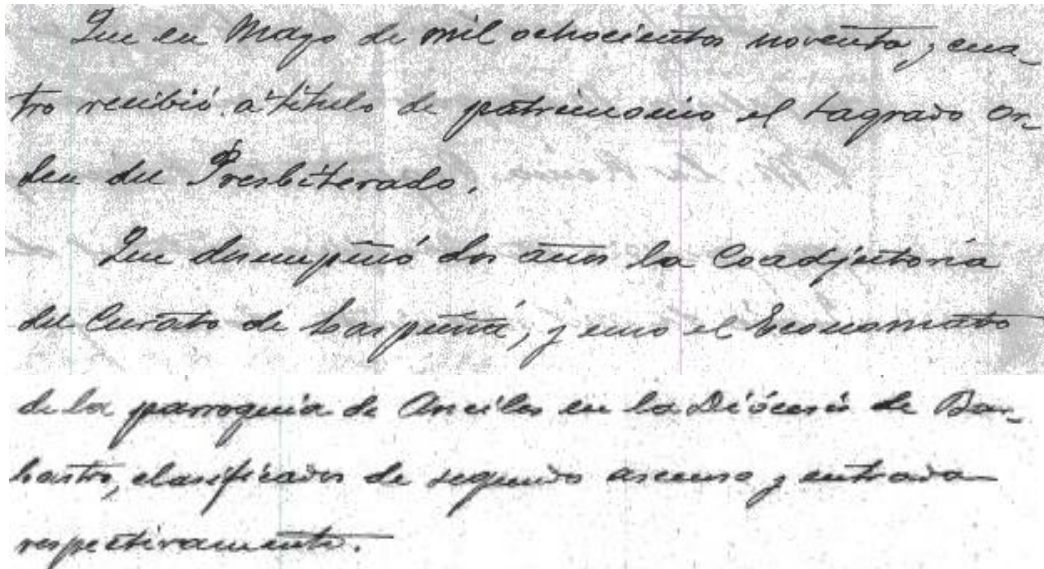 Que en Mayo de mil ochocientos noventa y cua-
tro recibió a título de patrimonio el sagrado Or-
den del Presbiterado.
Que desempeñó dos años la Coadjutoria
del Curato de Laspuña, y uno el Economato
de la parroquia de Anciles en la Diócesis de Bar-
bastro, clasificados de segundo ascenso y entrada
respectivamente.